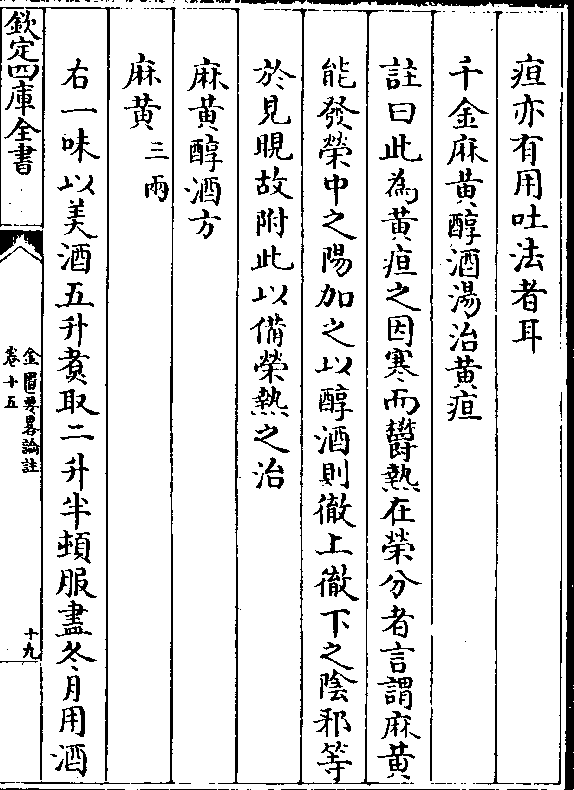 疸亦有用吐法者耳
千金麻黄醇酒湯治黄疸
註曰此為黄疸之因寒而欝熱在榮分者言謂麻黄
能發榮中之陽加之以醇酒則徹上徹下之陰邪等
於見晛故附此以備榮熱之治
麻黄醇酒方
麻黄三兩
右一味以美酒五升煑取二升半頓服盡冬月用酒
欽定四庫全書
金匱要畧論註
卷十五
十九